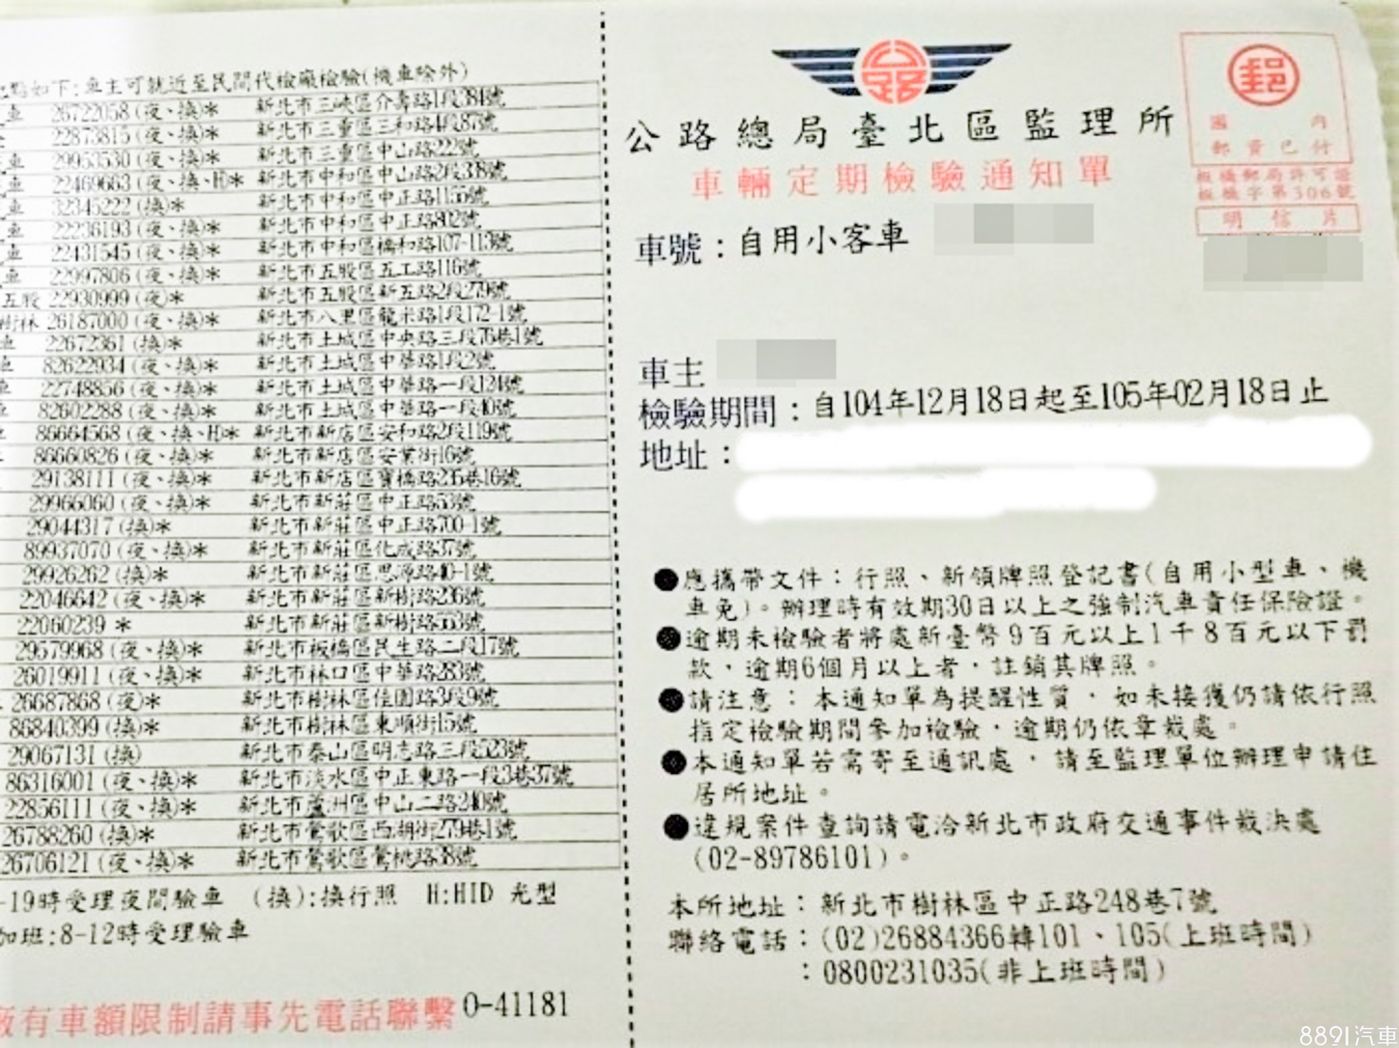 點如下:車主可就近至民間代檢廠檢驗(機車除外)
車 26722058(夜、換)* 新北市三峽區介壽路1段384號
22873815(夜、換)* 新北市三重區三和路4段87號
車 29953530(夜、換)* 新北市三重區中山路222號
車 22469663(夜、換、H)* 新北市中和區中山路2段338號
車 32345222(換)* 新北市中和區中正路1155號
車 22236193(夜、換)* 新北市中和區中正路802號
車 22431545(夜、換)* 新北市中和區橋和路107-113號
車 22997806(夜、換)* 新北市五股區五工路116號
五股 22930999(夜)* 新北市五股區新五路2段279號
樹林 26187000(夜、換)* 新北市八里區龍米路1段172-1號
22672361(換)* 新北市土城區中央路三段76巷1號
車 82622934(夜、換)* 新北市土城區中華路1段2號
22748856(夜、換)* 新北市土城區中華路一段124號
82602288(夜、換)* 新北市土城區中華路一段40號
86664568(夜、換、H)* 新北市新店區安和路2段119號
86660826(夜、換)* 新北市新店區安業街16號
29138111(夜、換)* 新北市新店區寶橋路235巷16號
29966060(夜、換)* 新北市新莊區中正路53號
29044317(換)* 新北市新莊區中正路700-1號
89937070(夜、換)* 新北市新莊區化成路37號
29926262(換)* 新北市新莊區思源路40-1號
22046642(夜、換)* 新北市新莊區新樹路236號
22060239 * 新北市新莊區新樹路553號
29579968(夜、換)* 新北市板橋區民生路二段17號
26019911(夜、換)* 新北市林口區中華路283號
26687868(夜)* 新北市樹林區佳園路3段9號
86840399(換)* 新北市樹林區東順街15號
29067131(換) 新北市泰山區明志路三段523號
86316001(夜、換)* 新北市淡水區中正東路一段3巷37號
22856111(夜、換)* 新北市蘆洲區中山二路240號
26788260(換)* 新北市鶯歌區西湖街279巷1號
26706121(夜、換)* 新北市鶯歌區鶯桃路38號
-19時受理夜間驗車 (換):換行照 H:HID 光型
加班:8-12時受理驗車
廠有車額限制請事先電話聯繫 0-41181
公路
公路總局臺北區監理所
車輛定期檢驗通知單
郵
國內
郵資已付
板橋郵局許可證
板橋字第306號
明信片
車號:自用小客車
車主
檢驗期間:自104年12月18日起至105年02月18日止
地址:
●應攜帶文件:行照、新領牌照登記書(自用小型車、機
車免)。辦理時有效期30日以上之強制汽車責任保險證。
●逾期未檢驗者將處新臺幣9百元以上1千8百元以下罰
款,逾期6個月以上者,註銷其牌照。
●請注意:本通知單為提醒性質,如未接獲仍請依行照
指定檢驗期間參加檢驗,逾期仍依章裁處。
●本通知單若需寄至通訊處,請至監理單位辦理申請住
居所地址。
●違規案件查詢請電洽新北市政府交通事件裁決處
(02-89786101)。
本所地址:新北市樹林區中正路248巷7號
聯絡電話:(02)26884366轉101、105(上班時間)
:0800231035(非上班時間)
8891汽車